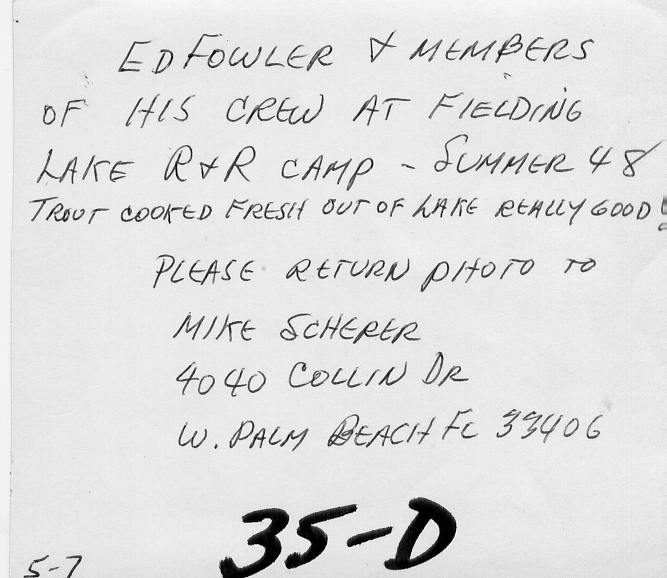 ED FOWLER & MEMBERS
OF HIS CREW AT FIELDING
LAKE R&R CAMP - SUMMER 48
TROUT COOKED FRESH OUT OF LAKE REALLY GOOD!
PLEASE RETURN PHOTO TO
MIKE SCHERER
4040 COLLIN DR
W. PALM BEACH FL 33406
35-D
5-7